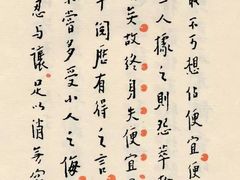 不可想佔便宜便
一人據之則怨萃
矣故終身失便宜
年閱歷有得之言
嘗多受小人之侮
忍与讓足以消無